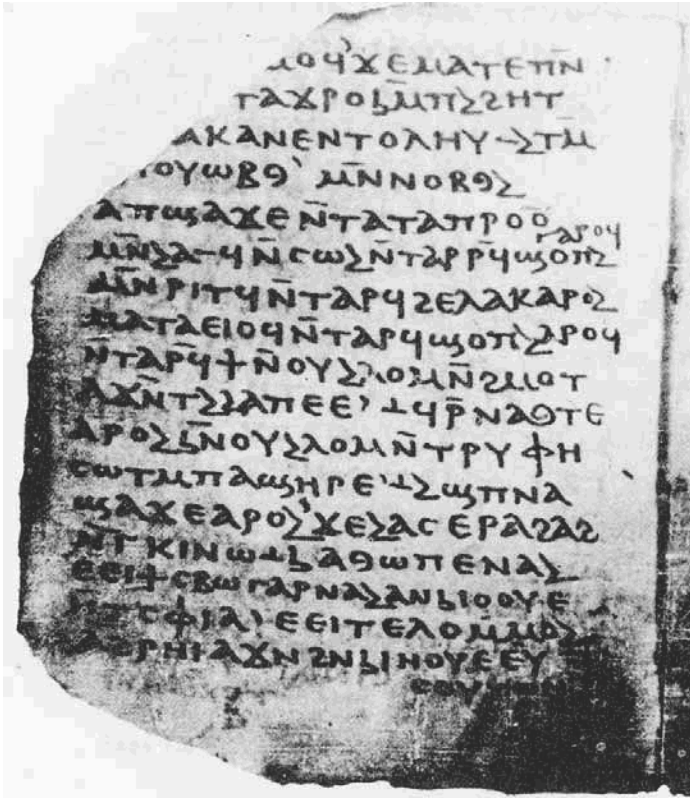 ⲙⲟϥ’ϫⲉⲙⲁⲧⲉⲡⲛ̄
ⲧⲁϫⲣⲟⳋⲙ̄ⲡⲹϩⲏⲧ
ⲁⲕⲁⲛⲉⲛⲧⲟⲗⲏⲩⲻⲹⲧⲙ̄
ⲟⲩⲱⲃⲑ’ ⲙⲛ̄ⲛⲟⲃⲑⲹ
ⲁⲡϣⲁϫⲉⲛ̄ⲧⲁⲧⲁⲡⲣⲟⲟ̄
ⲁⲣⲟϥ
ⲙⲛ̄ⲹⲁⲻϥⲛ̄ⲥⲱⲹⲛ̄ⲧⲁⲣⲣ̄ϥϣⲟⲡⲹ
ⲙⲛ̄ⲣⲓⲧϥⲛ̄ⲧⲁⲣϥϩⲉⲗⲁⲕⲁⲣⲟⲹ
ⲙⲁⲧⲁⲉⲓⲟϥⲛ̄ⲧⲁⲣϥϣⲟⲡⲹⲁⲣⲟϥ
ⲛ̄ⲧⲁⲣ̄ϥϯⲛ̄ⲟⲩⲹⲗⲟⲙⲛ̄ϩⲙⲟⲧ
ⲁϫⲛ̄ⲧⲹⲁⲡⲉⲉ’ⲳϥⲣ̄ⲛⲁⲑⲧⲉ
ⲁⲣⲟⲹⳋⲛ̄ⲟⲩⲹⲗⲟⲙⲛ̄ⲧⲣⲩⲫⲏ
ⲥⲱⲧⲙⲡⲁϣⲏⲣⲉ’ⲳⲹϣⲡⲛⲁ
ϣⲁϫⲉⲁⲣⲟⲹ’ϫⲉⲹⲁⲥⲉⲣⲁϩⲁϩ
ⲛ̄ⲅⲕⲓⲛⲱⲳⳋⲁⲑⲱⲡⲉⲛⲁⲹ
ⲉⲉⲓϯⲥⲃⲱⲅⲁⲣⲛⲁⲹⲁⲛⳋⲓⲟⲟⲩⲉ
ⲥⲫⲓⲁ’ⲉⲉⲓⲧⲉⲗⲟⲙ̄ⲙⲟⲹ
ⲁⳋⲣⲏⲓⲁϫⲛϩⲛⳋⲓⲛⲟⲩⲉⲉⲩ
ⲥⲟⲩ